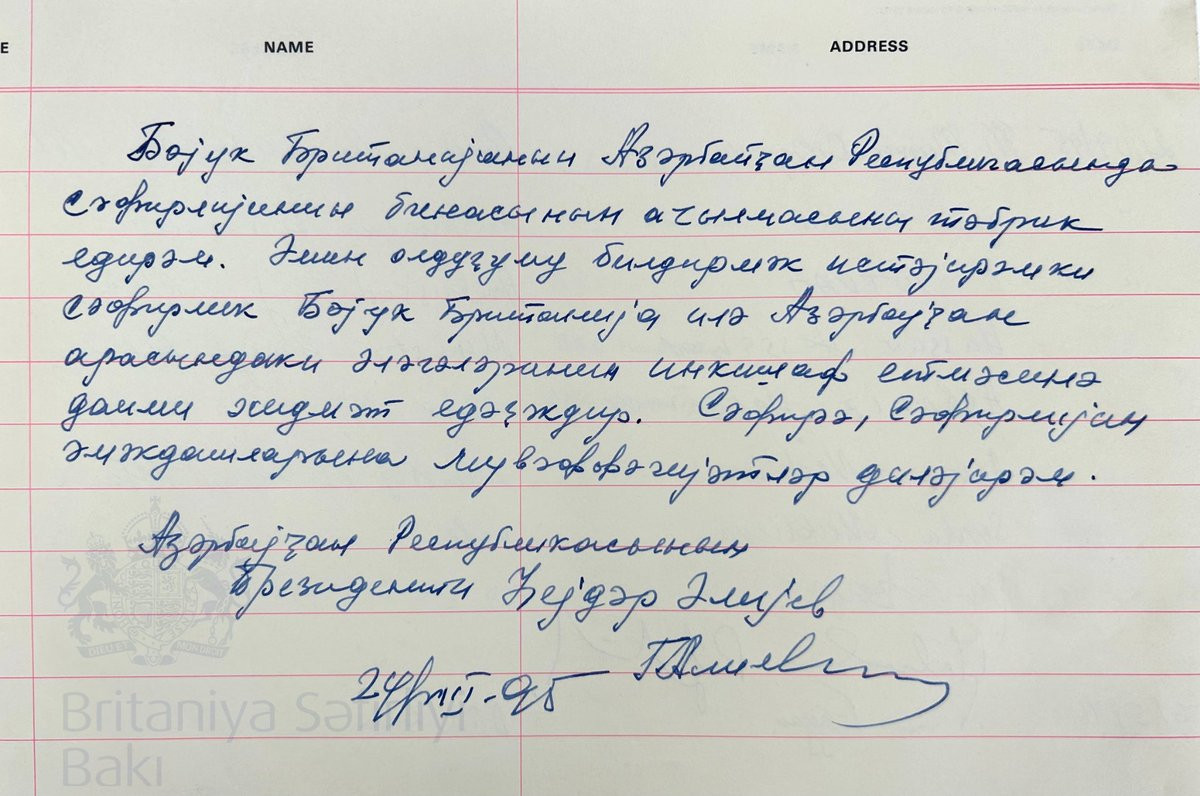 E NAME ADDRESS
Бөјук Британијанын Азәрбајҹан Республикасында
сәфирлијинин бинасынын ачылмасыны тәбрик
едирәм. Әмин олдуғуму билдирмәк истәјирәмки
сәфирлик Бөјук Британија илә Азәрбајҹан
арасындаки әлагәләринин инкишаф етмәсинә
даими хидмәт едәҹәкдир. Сәфирә, Сәфирлијин
әмәкдашларына мувәффәгијәтләр диләјирәм.
Азәрбајҹан Республикасынын
Президенти Һејдәр Әлијев
ГАлиев
24/III-95
DIEU ET MON DROIT
Britaniya Səfirliyi
Bakı